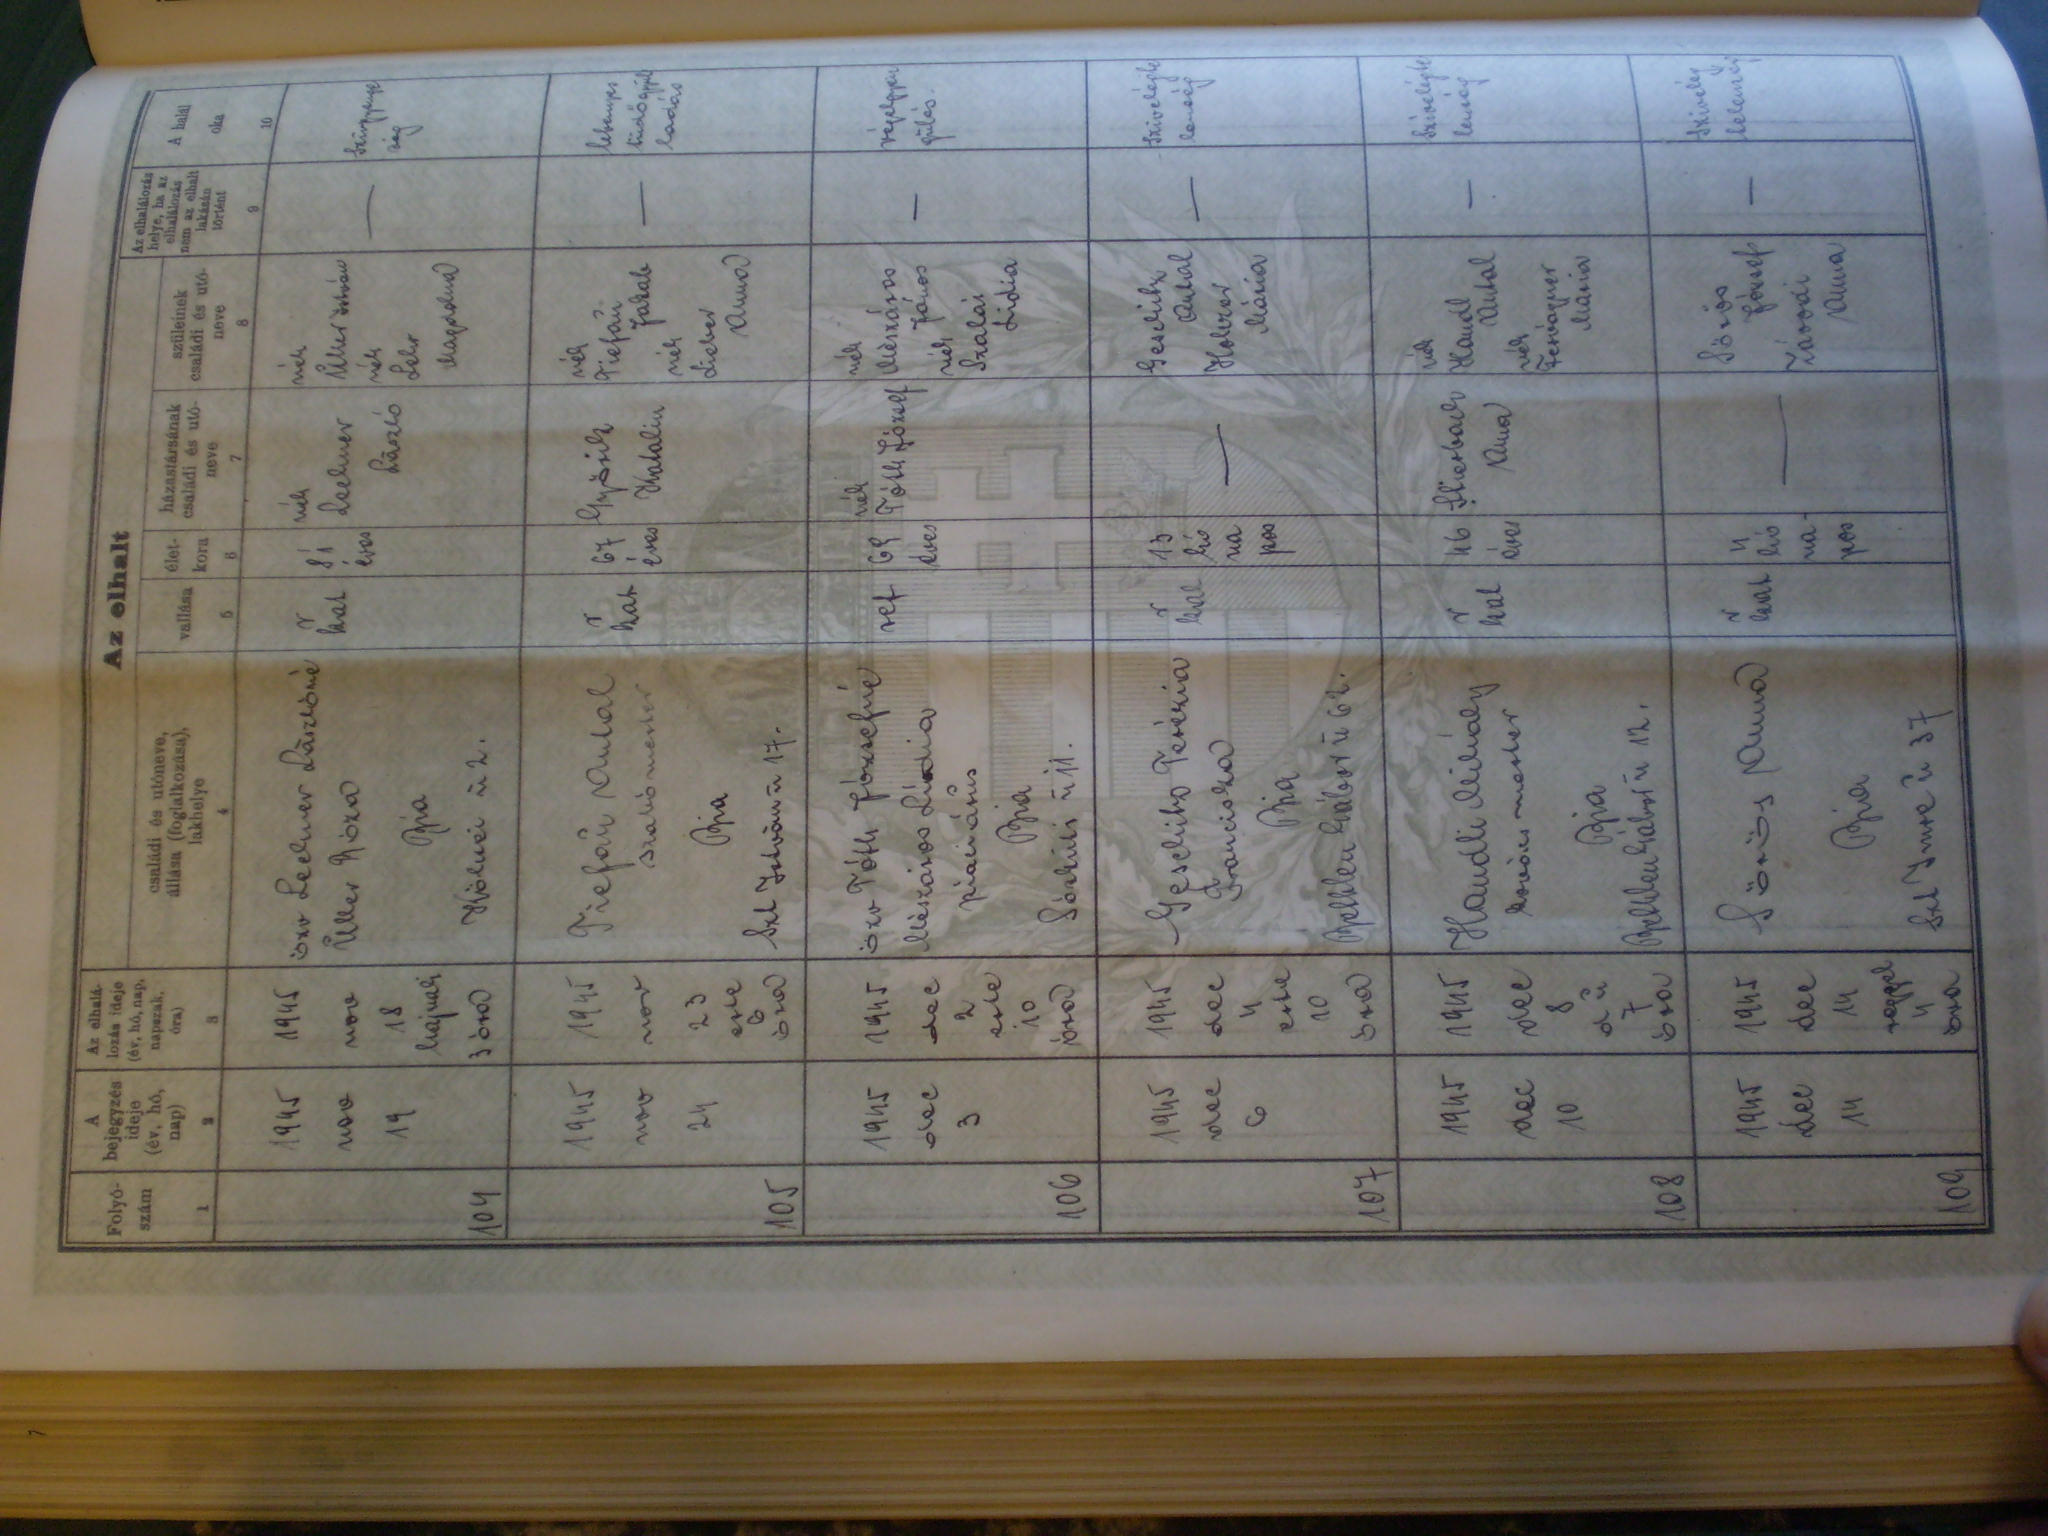 Az elhalt
Folyó-
szám
A
bejegyzés
ideje
(év, hó,
nap)
Az elhalá-
lozás ideje
(év, hó, nap,
napszak,
óra)
családi és utóneve,
állása (foglalkozása),
lakhelye
vallása
élet-
kora
házastársának
családi és utó-
neve
szüleinek
családi és utó-
neve
Az elhalálozás
helye, ha az
elhalálozás
nem az elhalt
lakásán
történt
A halál
oka
1
2
3
4
5
6
7
8
9
10
104
1945
nov
19
1945
nov
18
hajnali
3 óra
özv Lechner Lászlóné
Üller Róza
Bia
Kölcsei u 2.
r
kat
81
éves
néh
Lechner
László
néh
Üller István
néh
Lehr
Magdolna
—
105
1945
nov
24
1945
nov
23
este
6
óra
Tiefán Antal
szabómester
Bia
Szt István u 17.
r
kat
67
éves
Györik
Katalin
néh
Tiefán
Jakab
néh
Anna
—
lebenyes
tüdőgyul
ladás
106
1945
dec
3
1945
dec
2
este
10
óra
özv Tóth Józsefné
Mészáros Lidia
piaciárus
Bia
u 11.
ref
69
éves
néh
Tóth József
néh
Mészáros
János
néh
Szalai
Lidia
—
végelgyen
gülés.
107
1945
dec
6
1945
dec
4
este
10
óra
Geschho Terézia
Franciska
Bia
Bethlen Gábor u 62.
r
kat
13
hó
na
pos
—
Antal
Holczer
Mária
—
Szívelégte
lenség
108
1945
dec
10
1945
dec
8
du
7
óra
Handli Mihály
kovács mester
Bia
Bethlen Gábor u 12.
r
kat
46
éves
Stierbach
Anna
néh
Handl
Antal
néh
Mária
—
Szívelégte
lenség
109
1945
dec
14
1945
dec
14
reggel
4
óra
Sörös Anna
Bia
Szt Imre u 37
r
kat
4
hó
na-
pos
—
Sörös
József
Závodi
Anna
—
Szívelég
telenség